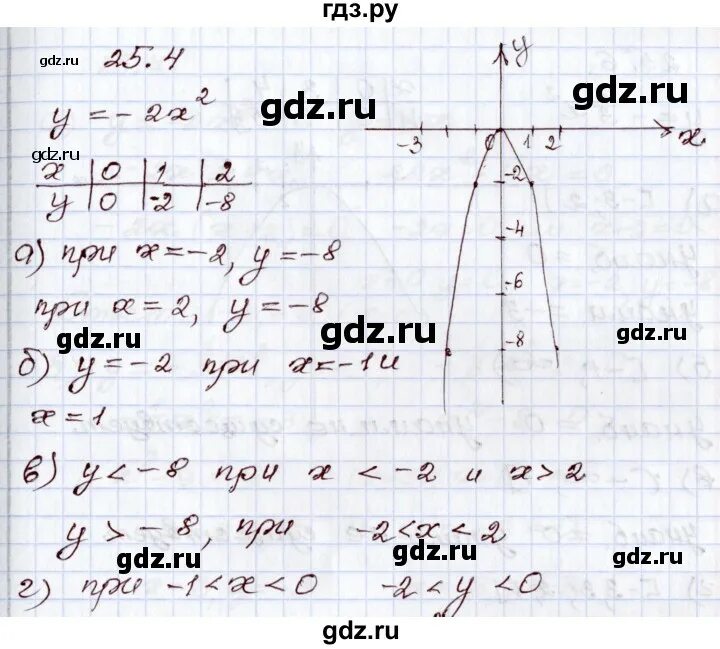 гдз.ру
25.4
gdz.ru
y
gdz.ru
gdz.ru
y = -2x²
gdz.ru
-3 0 1 2 x
x | 0 | 1 | 2
y | 0 | -2 | -8
-2
-4
-6
-8
gdz.ru
gdz.ru
а) при x = -2, y = -8
при x = 2, y = -8
gdz.ru
gdz.ru
gdz.ru
б) y = -2 при x = -1 и
x = 1
в) y < -8 при x < -2 и x > 2
gdz.ru
gdz.ru
y > -8, при -2 < x < 2
gdz.ru
gdz.ru
г) при -1 < x < 0 -2 < y < 0
gdz.ru